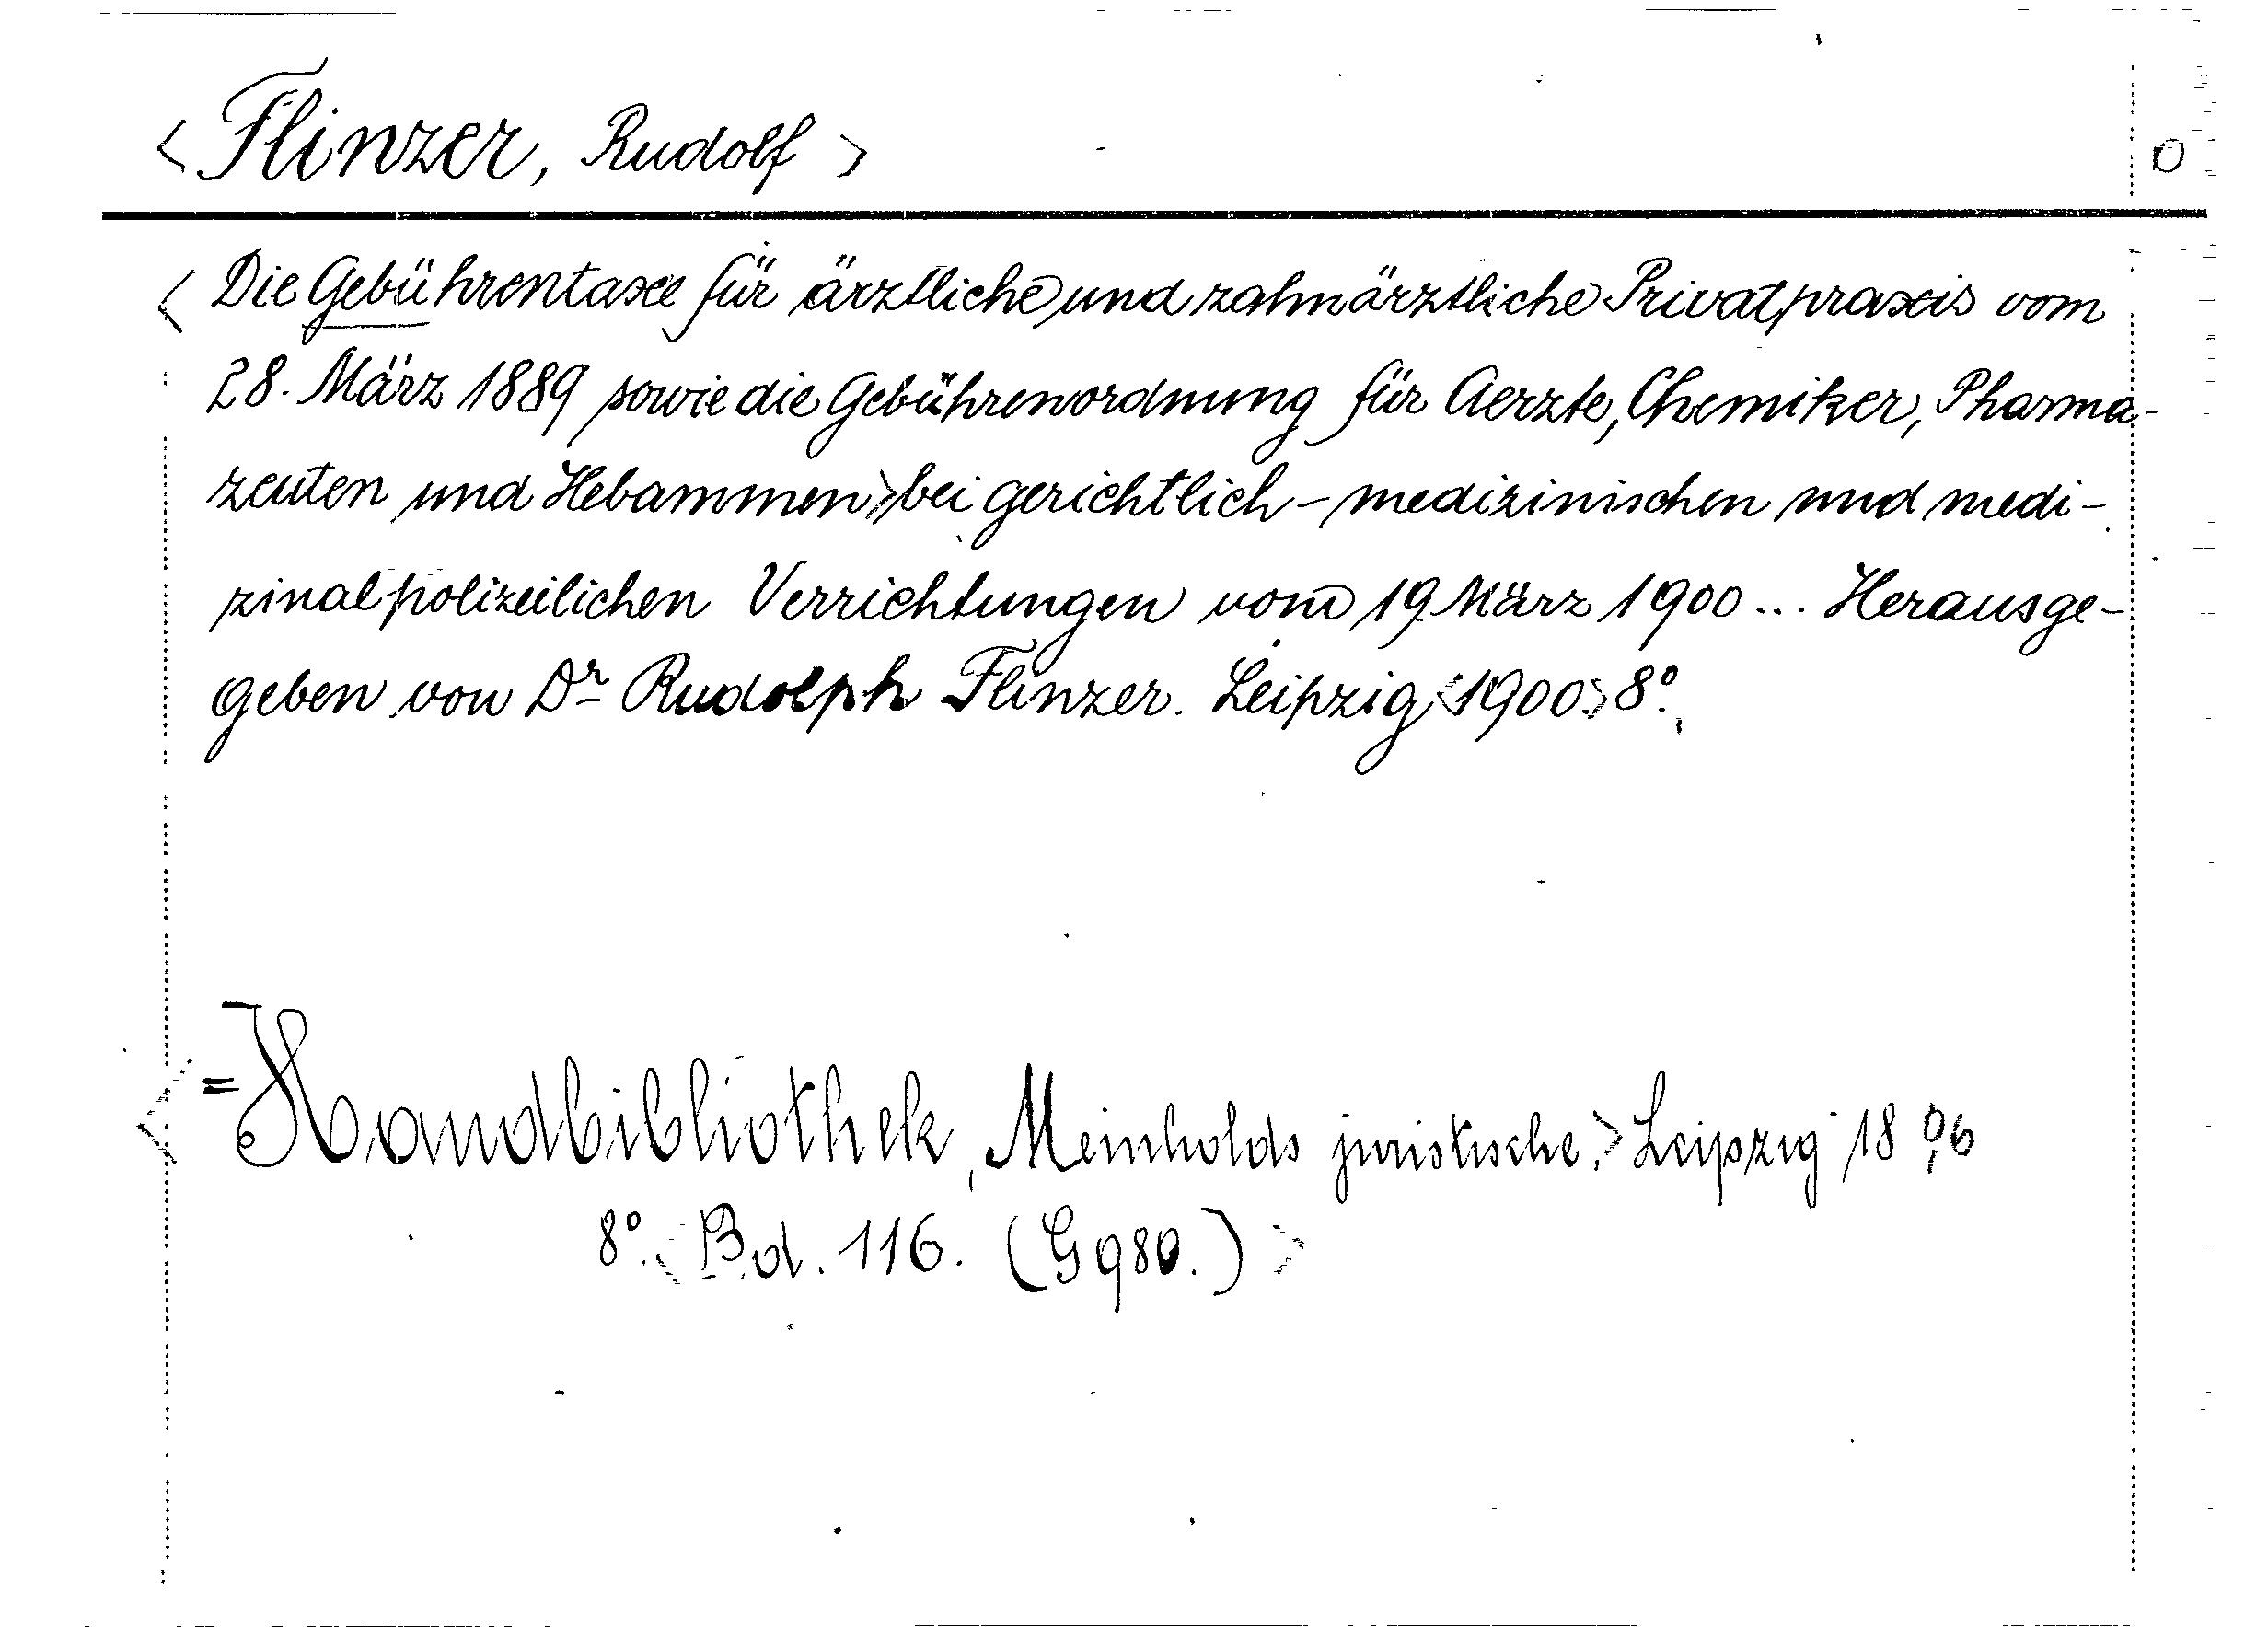 < Flinzer, Rudolf >
O
< Die Gebührentaxe für ärztliche und zahnärztliche Privatpraxis vom
28. März 1889 sowie die Gebührenordnung für Aerzte, Chemiker, Pharma-
zeuten und Hebammen > bei gerichtlich-medizinischen und medi-
zinalpolizeilichen Verrichtungen vom 19. März 1900 ... Herausge-
geben von Dr Rudolph Flinzer. Leipzig <1900.> 8°.
< = Handbibliothek, Meinholds juristische. > Leipzig 1896
8°. < Bd. 116. (G980.) >